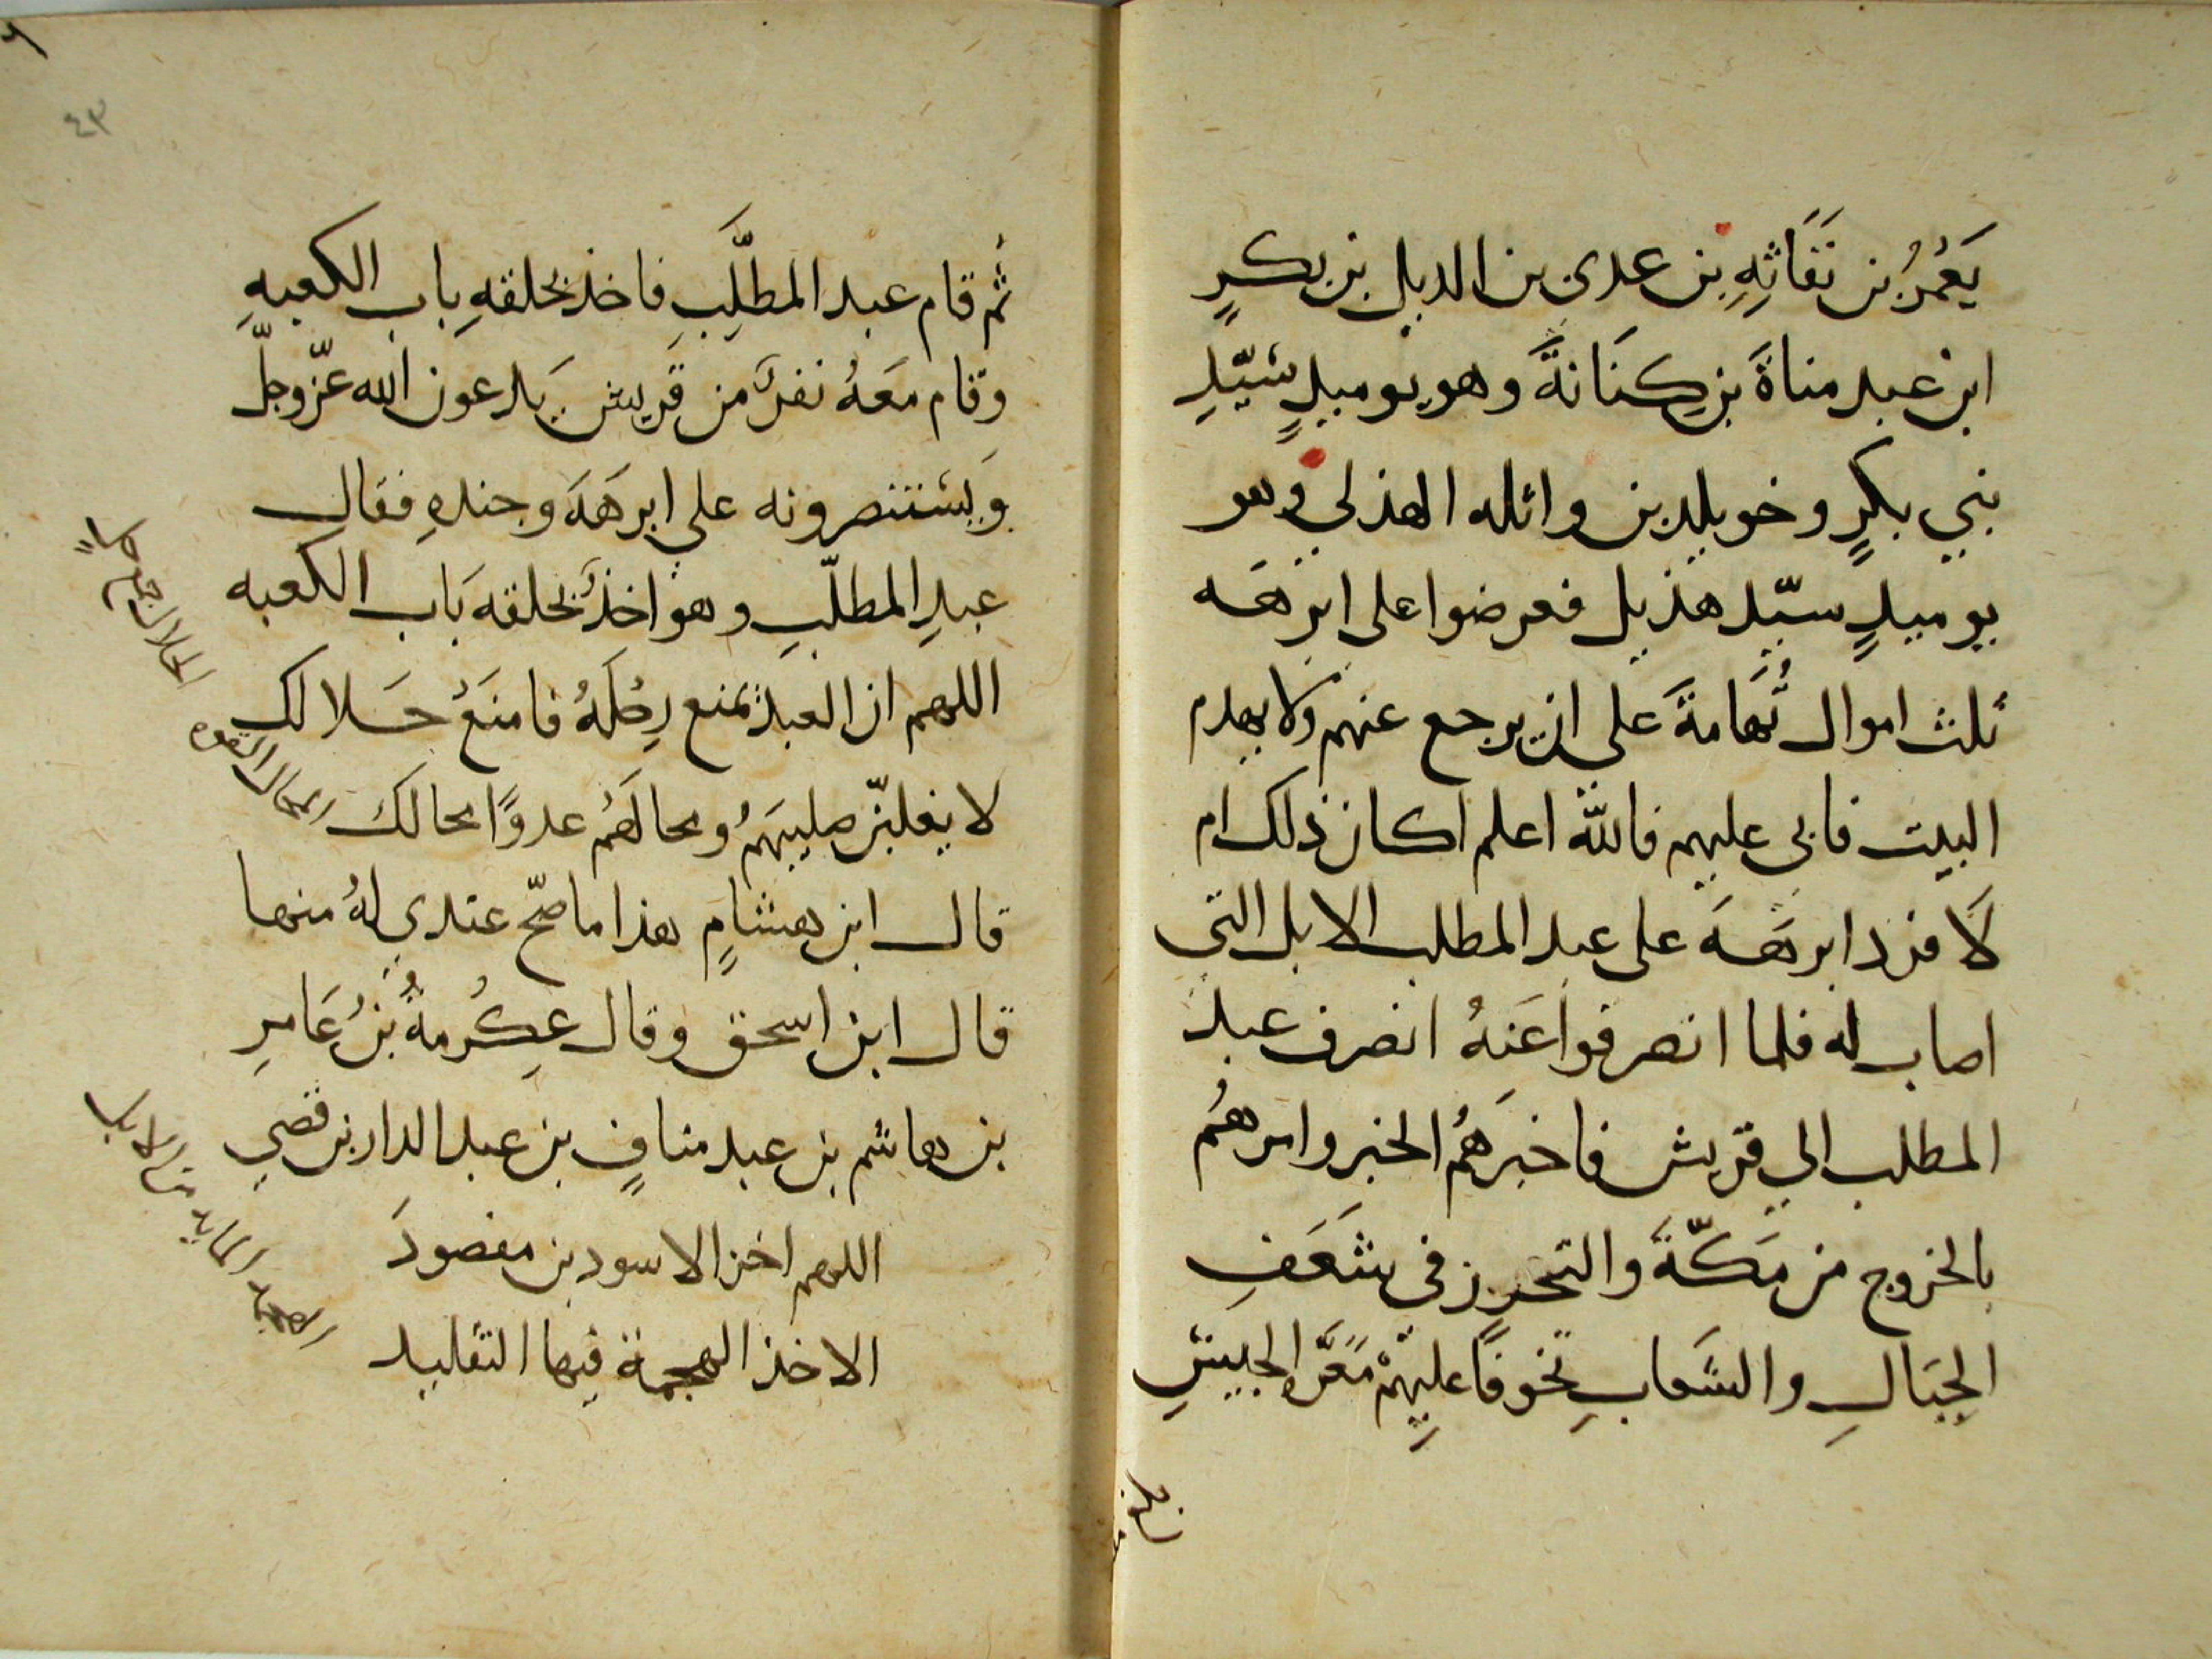 يَعْمُرُ بن نَفَاثَةِ بن عدى بن الديل بن بكرٍ
ابن عبد مناةَ بن كِنَانةَ وهو يوميدٍ سَيّدِ
بني بكرٍ وخويلد بن وائله الهذلي وهو
يوميدٍ سيّد هذيل فعرضوا على ابرهَه
ثلث اموال تُهَامةَ على ان يرجع عنهم ولا يهدم
البيت فابى عليهم فاللّه اعلم اكان ذلك ام
لَا فرد ابرهَه على عبد المطلب الابل التى
اصاب له فلما انصرفوا عَنهُ انصرف عبد
المطلب الي قريش فاخبرَهُم الخبر وامرهُم
بالخروج من مَكّةَ والتحرز في شَعَفِ
الجِبَالِ والشَعابِ تخوفًا عليهِمْ مَعَرَّ الجيشِ
٤٣
ثم قام عبد المطلَّبِ فاخذ بحلقهِ باب الكعبهِ
وقام معَهُ نفرٌ من قريش يَدعون الله عزّوجلّ
وَيستنصرونه على ابرهَهَ وجندهِ فقال
عبدِ المطلّبِ وهو اخذٌ بحلقه بَاب الكعبه
اللهم ان العبد يمنع رِحْلَهُ فامنَعْ حَلالك
لا يغلبنّ صليبهَمُ ومحالَهُم عدوًا محالكَ
قال ابن هشامٍ هذا ما صحّ عندي لهُ منها
قال ابن اسحق وقال عِكْرمةُ بنُ عَامرِ
بن هاشم بن عبد منافٍ بن عبد الدار بن قصي
اللهم اخز الاسود بن مفصودَ
الاخذ الهجمة فيها التقليد
الحلال جمع حلة
المحال القوه
الهجمه المايه من الابل